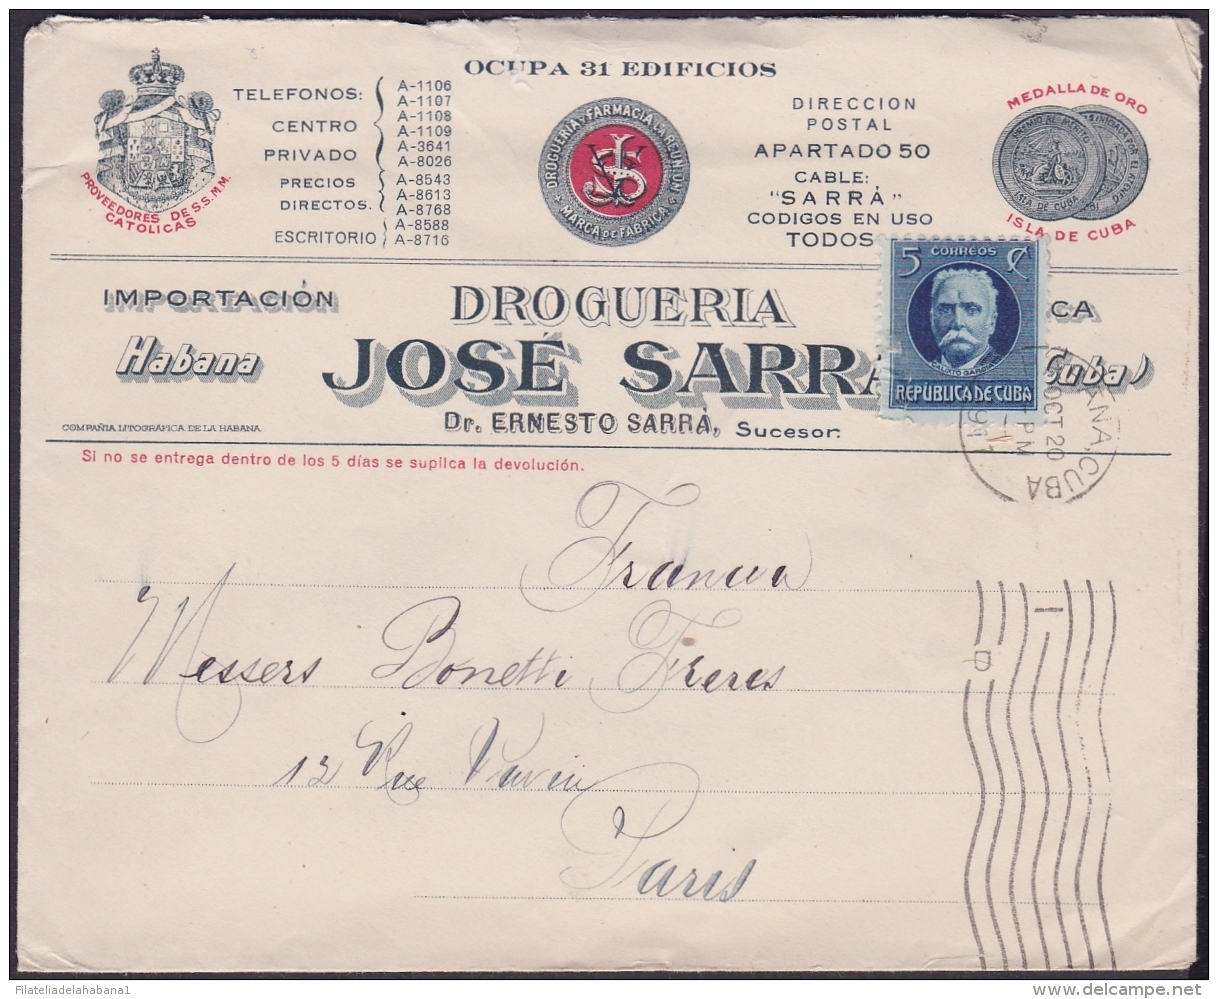 OCUPA 31 EDIFICIOS
PROVEEDORES DE S.S.M.M.
CATOLICAS
TELEFONOS:
CENTRO
PRIVADO
PRECIOS
DIRECTOS.
ESCRITORIO
A-1106
A-1107
A-1108
A-1109
A-3641
A-8026
A-8543
A-8613
A-8768
A-8588
A-8716
DROGUERIA Y FARMACIA LA REUNION
MARCA DE FABRICA
DIRECCION
POSTAL
APARTADO 50
CABLE:
"SARRÁ"
CODIGOS EN USO
TODOS
MEDALLA DE ORO
PREMIO AL MERITO
ISLA DE CUBA
ISLA DE CUBA
IMPORTACIÓN
DROGUERIA
CA
Habana
JOSÉ SARRA
Cuba
Dr. ERNESTO SARRÀ, Sucesor.
COMPAÑIA LITOGRÁFICA DE LA HABANA.
5 CORREOS C
CALIXTO GARCIA
REPÚBLICA DE CUBA
HABANA, CUBA
OCT 20
PM
Si no se entrega dentro de los 5 días se suplica la devolución.
Francia
Messers Bonetti Freres
12 Rue Vavin
Paris
Filateliadelahabana1
delcampe.net